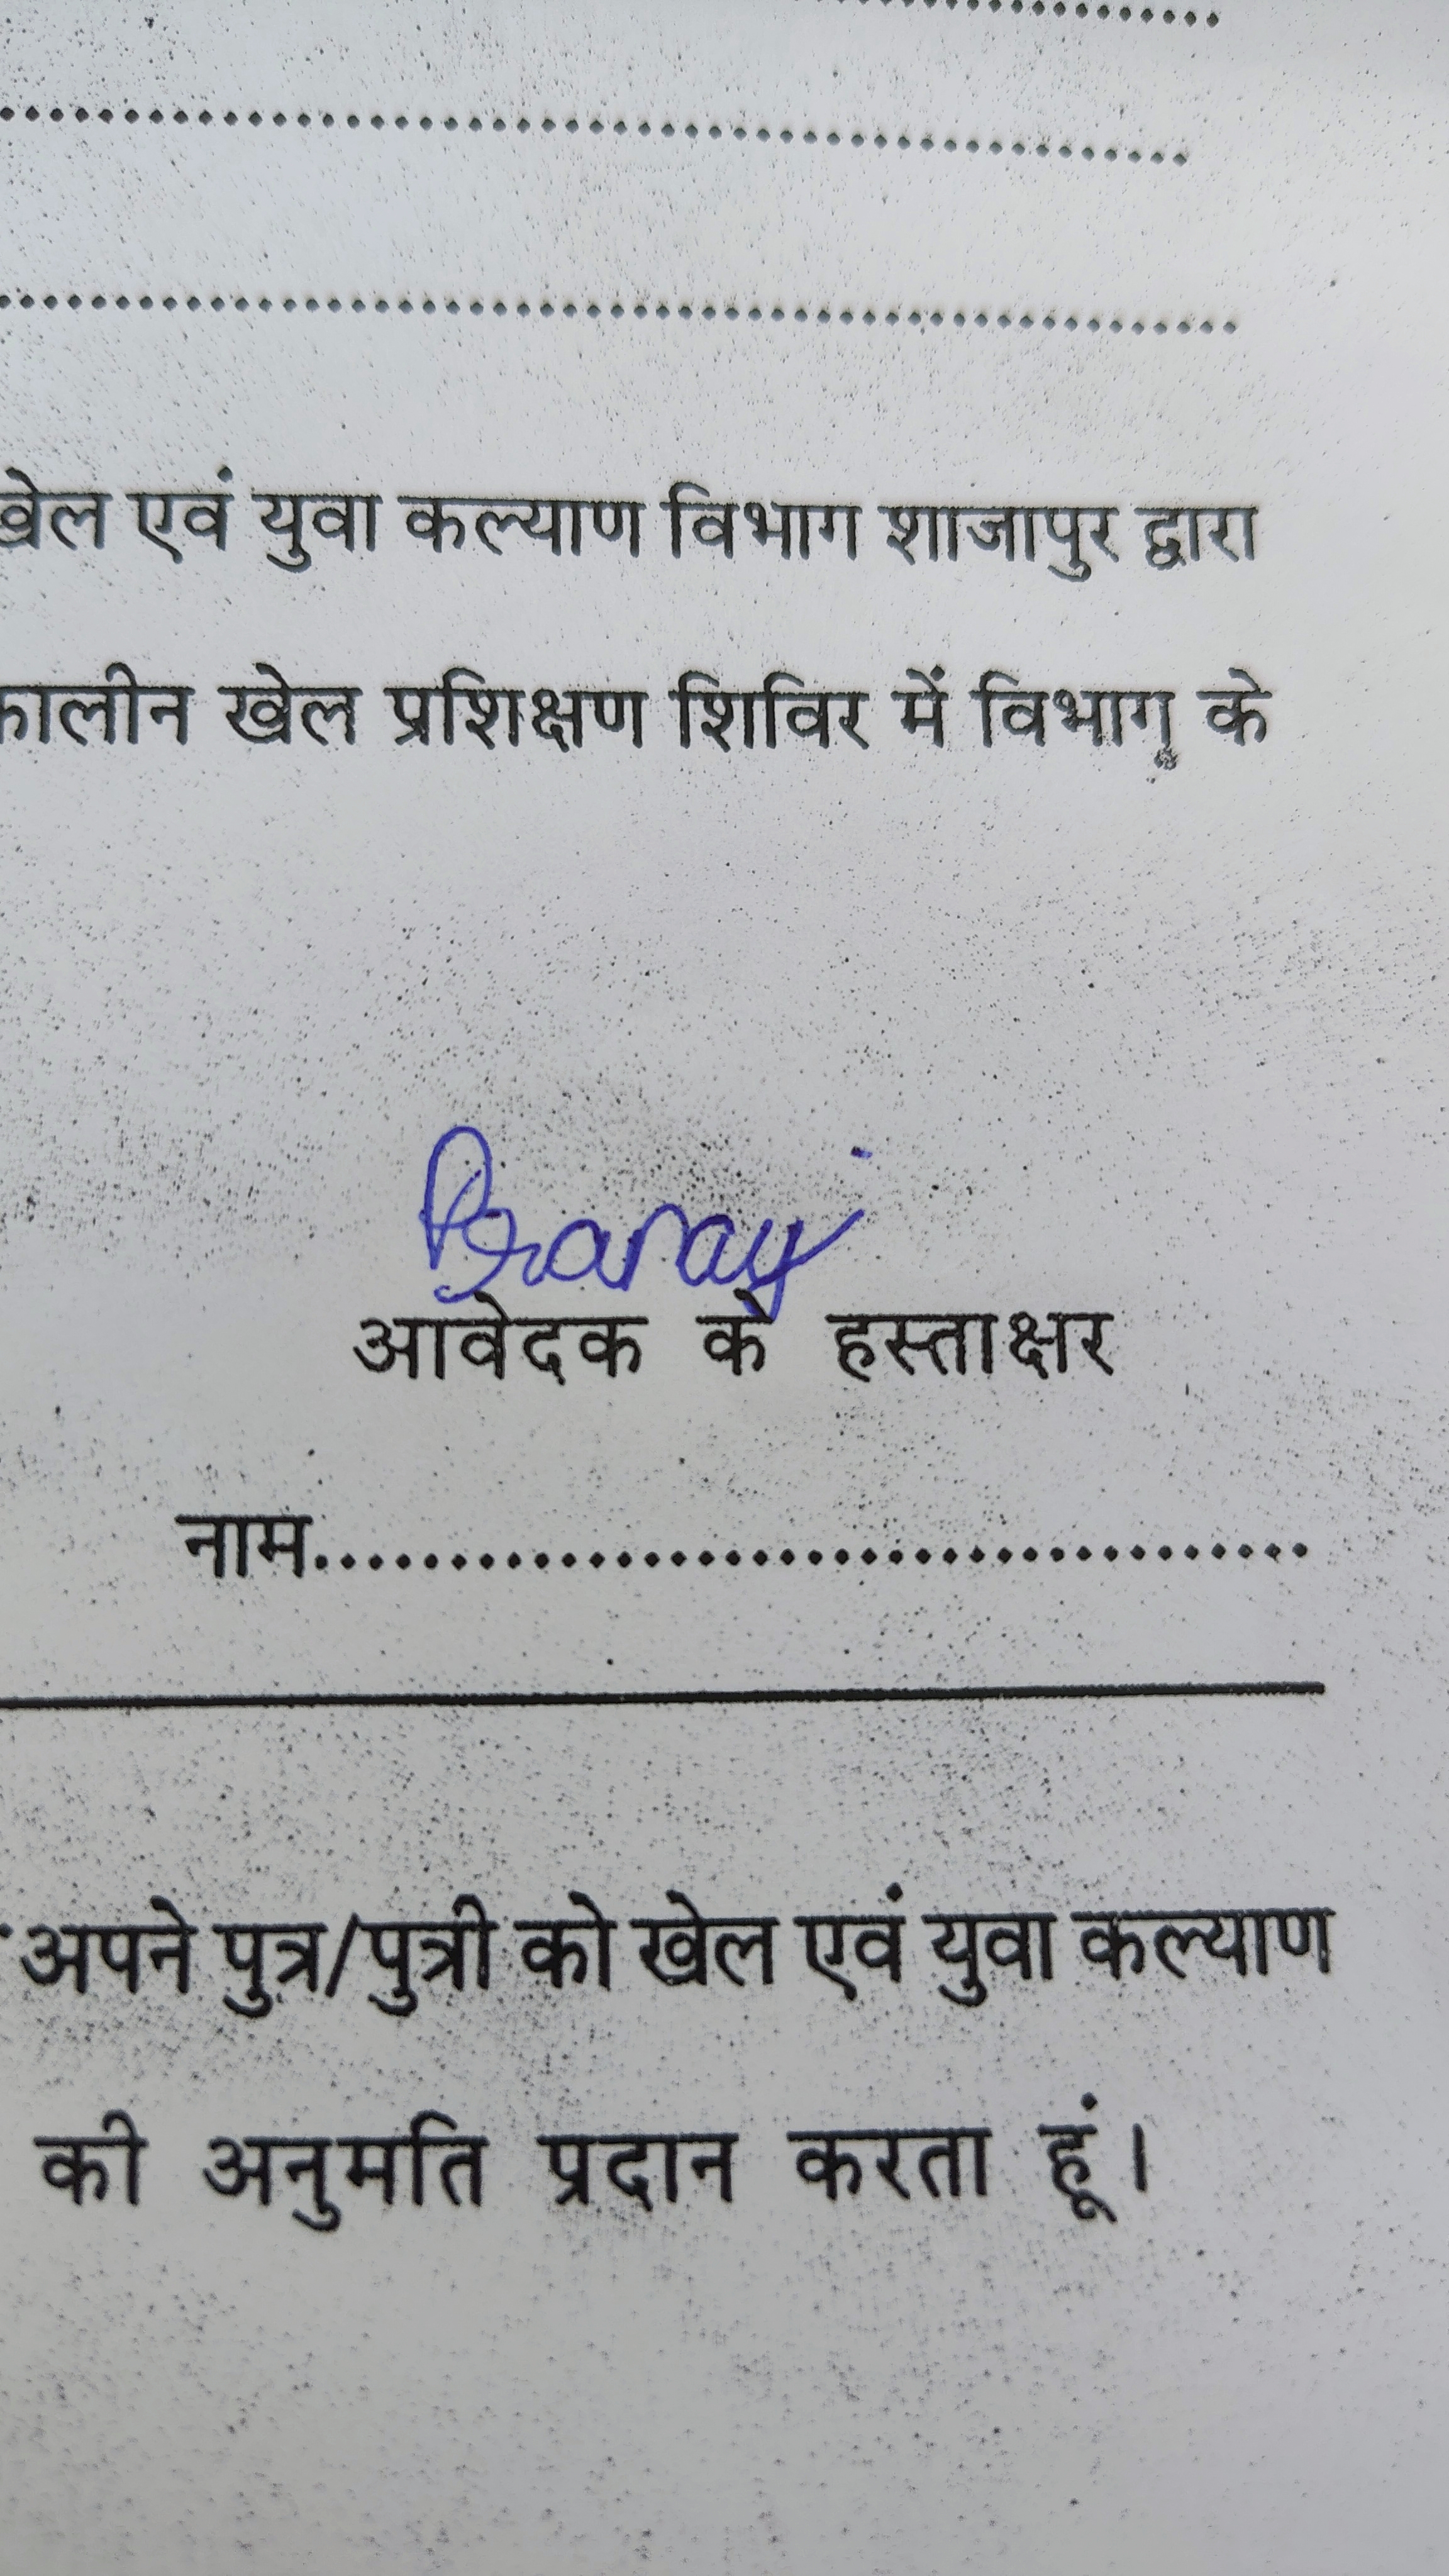 खेल एवं युवा कल्याण विभाग शाजापुर द्वारा
कालीन खेल प्रशिक्षण शिविर में विभाग के
आवेदक के हस्ताक्षर
नाम........................................
अपने पुत्र/पुत्री को खेल एवं युवा कल्याण
की अनुमति प्रदान करता हूं।